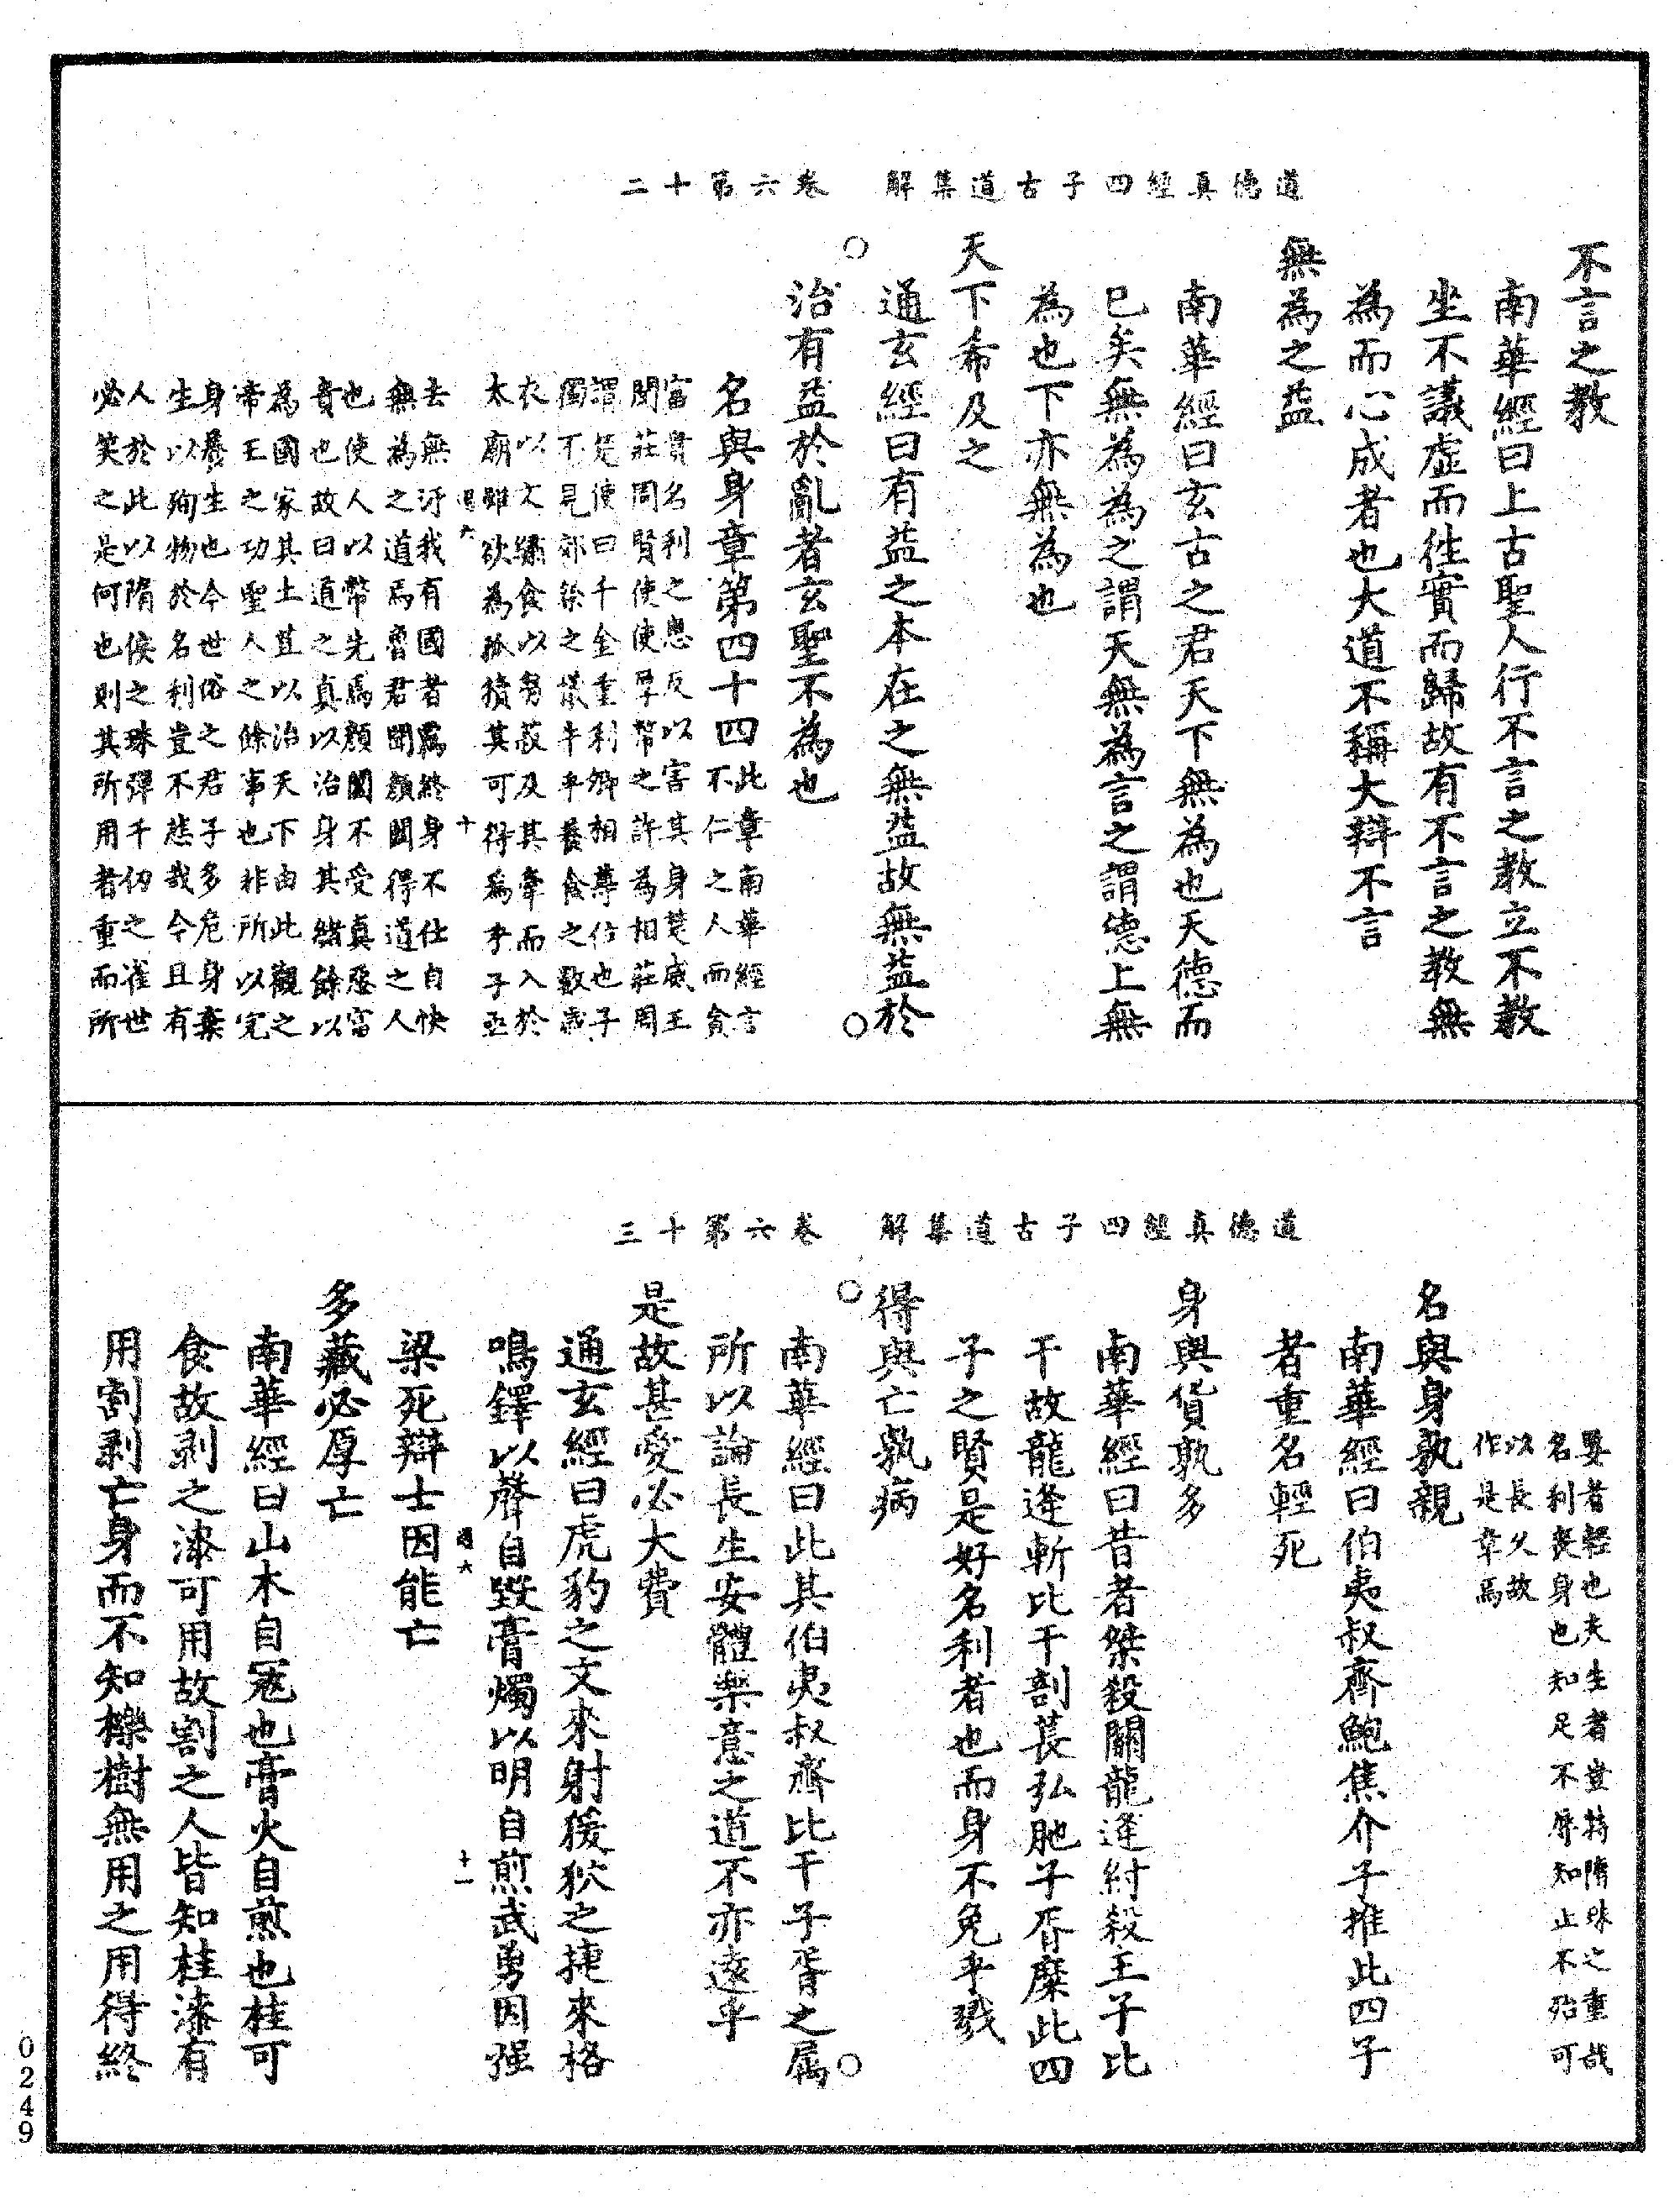 道德真經四子古道集解　卷六第十二
不言之教
南華經曰上古聖人行不言之教立不教
坐不議虛而徃實而歸故有不言之教無
為而心成者也大道不稱大辯不言
無為之益
南華經曰玄古之君天下無為也天德而
已矣無為為之謂天無為言之謂德上無
為也下亦無為也
天下希及之
通玄經曰有益之本在之無益故無益於
治有益於亂者玄聖不為也
名與身章第四十四
此章南華經言
不仁之人而貪
富貴名利之患反以害其身楚威王
聞莊周賢使使厚幣之許為相莊周
謂楚使曰千金重利卿相尊位也子
獨不見郊祭之犧牛乎養食之數歲
衣以文繡食以芻菽及其牽而入於
太廟雖欲為孤犢其可得為乎子亟
去無汙我有國者羈終身不仕自快
無為之道焉魯君聞顏闔得道之人
也使人以幣先焉顏闔不受真惡富
貴也故曰道之真以治身其緒餘以
為國家其土苴以治天下由此觀之
帝王之功聖人之餘事也非所以完
身養生也今世俗之君子多危身棄
生以殉物於名利豈不悲哉今且有
人於此以隋侯之珠彈千仞之雀世
必笑之是何也則其所用者重而所
道德真經四子古道集解　卷六第十三
要者輕也夫生者豈特隋珠之重哉
名利喪身也知足不辱知止不殆可
以長久故
作是章焉
名與身孰親
南華經曰伯夷叔齊鮑焦介子推此四子
者重名輕死
身與貨孰多
南華經曰昔者桀殺關龍逄紂殺王子比
干故龍逄斬比干剖萇弘胣子胥糜此四
子之賢是好名利者也而身不免乎戮
得與亡孰病
南華經曰此其伯夷叔齊比干子胥之屬
所以論長生安體樂意之道不亦遠乎
是故甚愛必大費
通玄經曰虎豹之文來射猨狖之捷來格
鳴鐸以聲自毀膏燭以明自煎武勇因强
梁死辯士因能亡
多藏必厚亡
南華經曰山木自寇也膏火自煎也桂可
食故剥之漆可用故割之人皆知桂漆有
用割剥亡身而不知櫟樹無用之用得終
0249